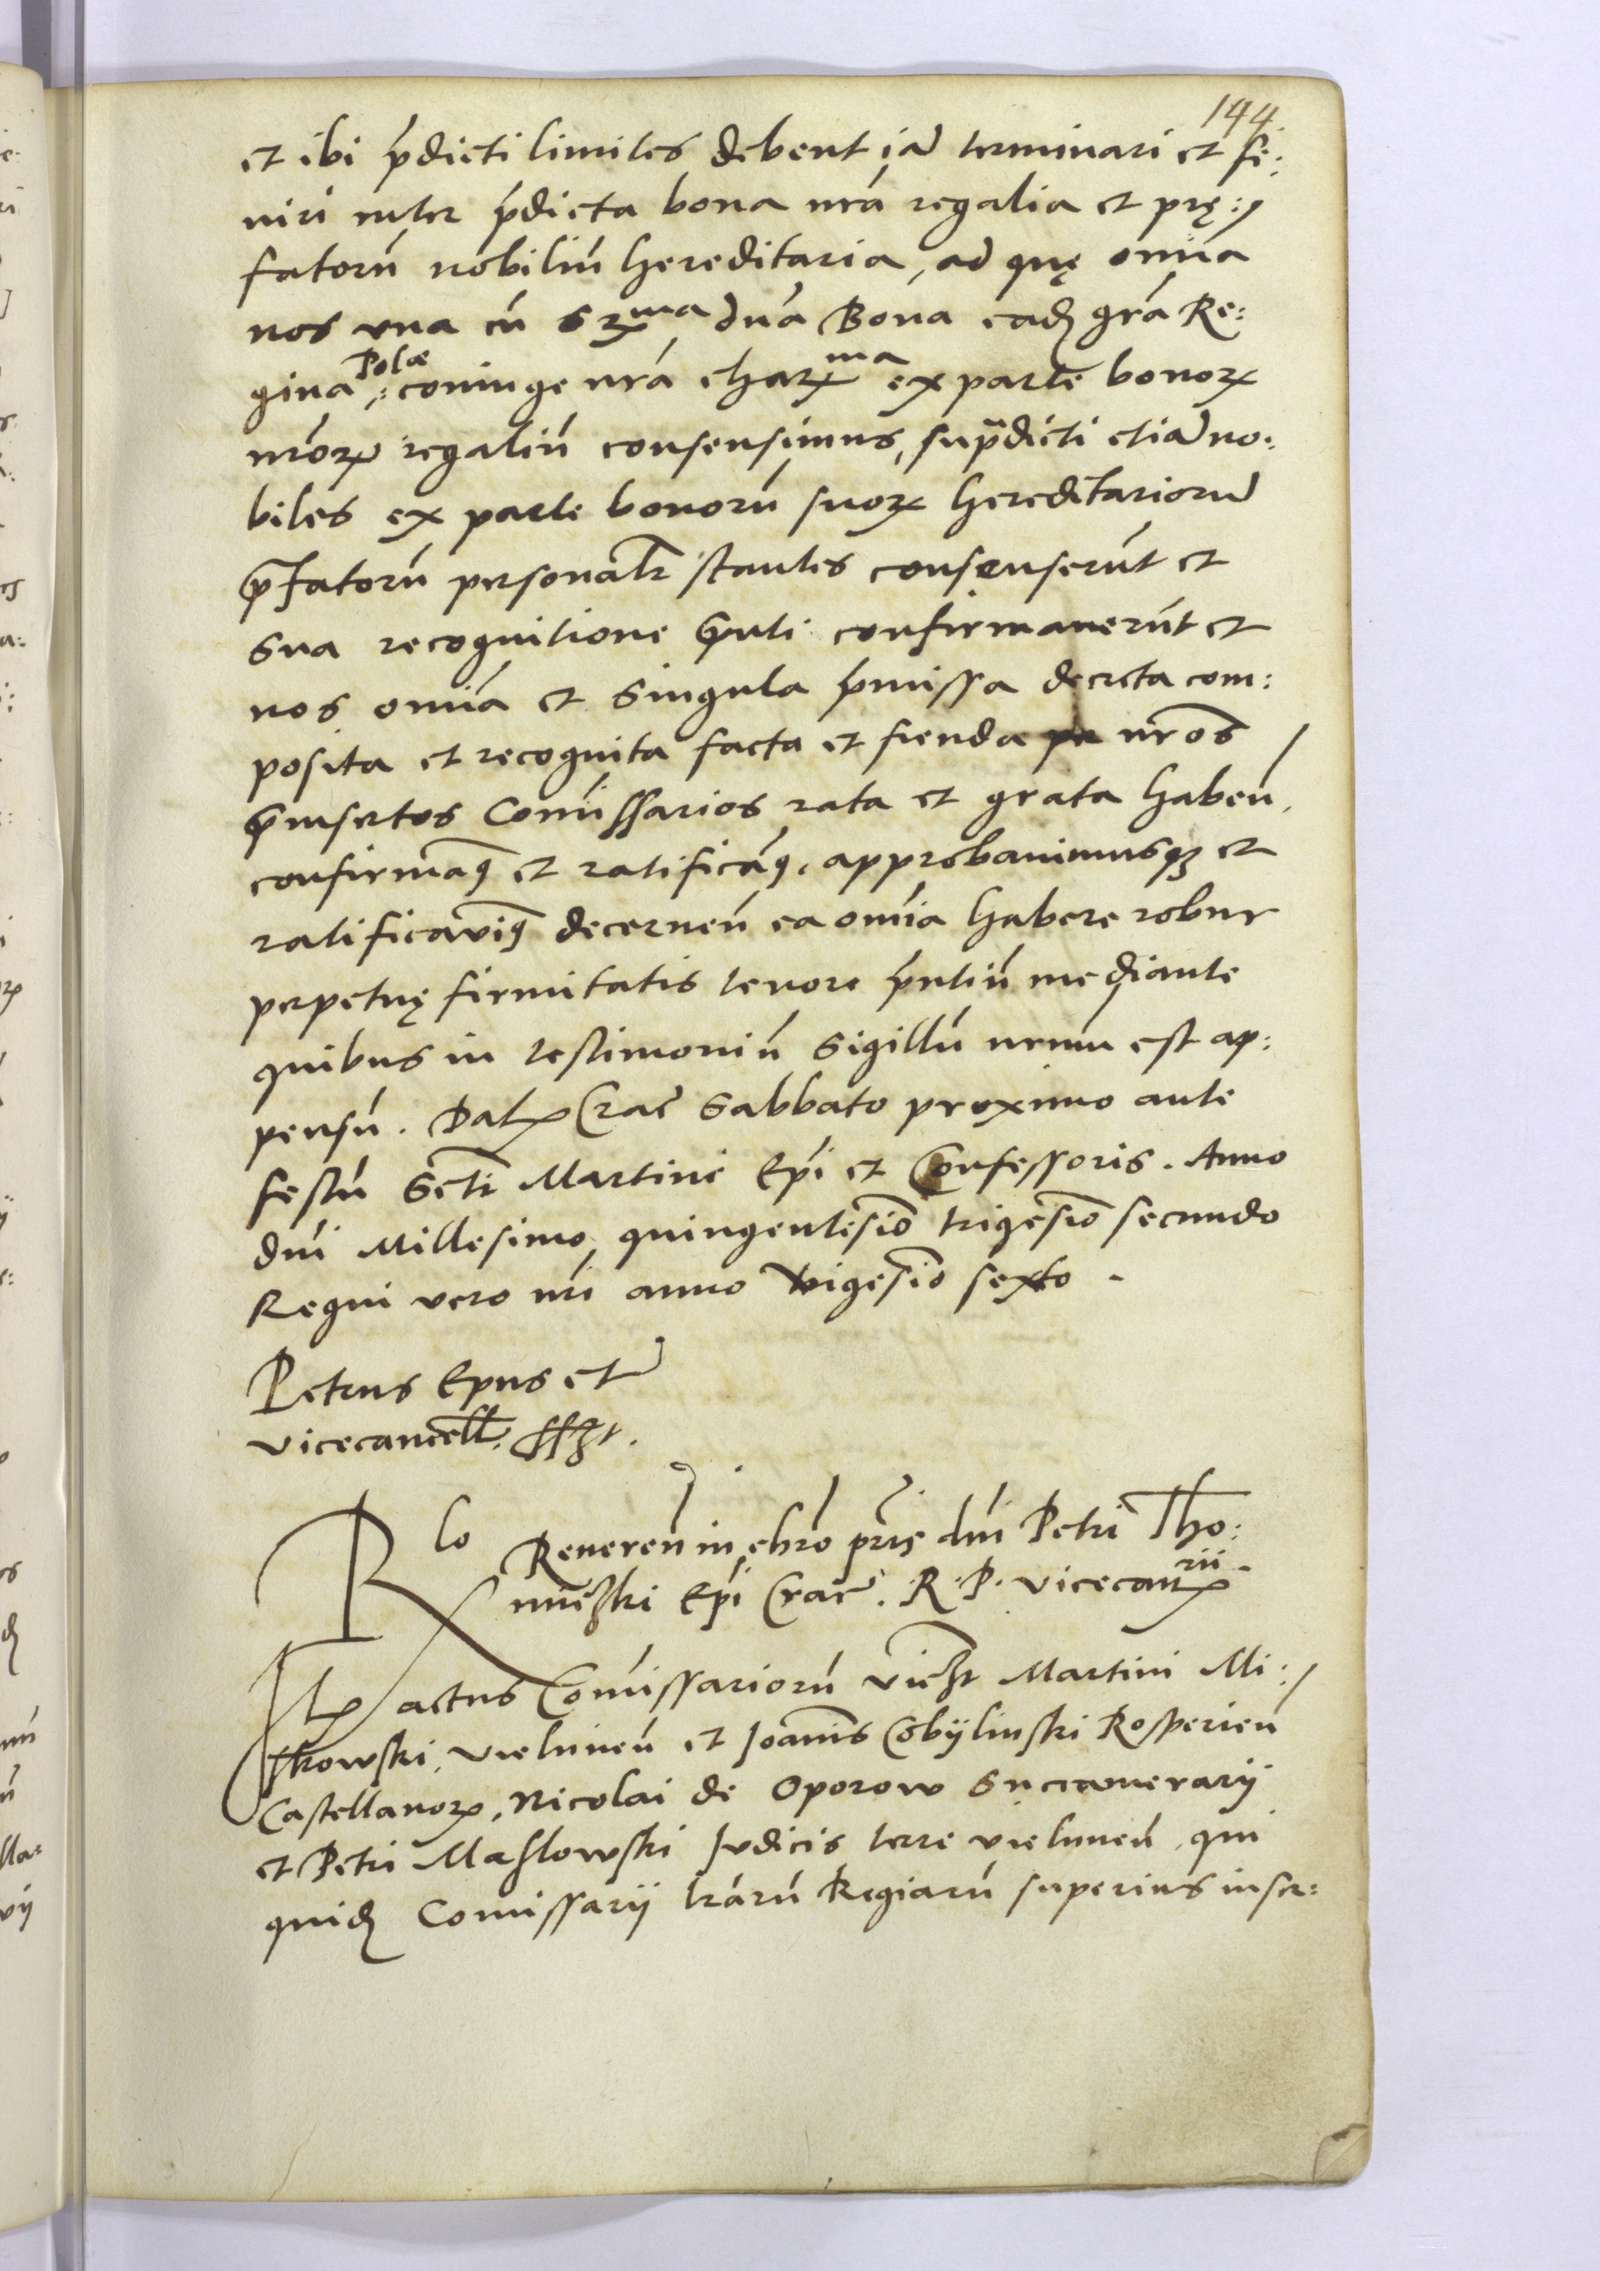 144
et ibi p̄dicti limites debent iā terminari et fi:
niri inter p̄dicta bona nr̄a regalia et prę:
fatorū nobiliū hereditaria, ad quę om̄ia
nos vna cū Sꝝma dn̄a Bona eadꝫ gr̄a Re:
gina Polæ coniuge nr̄a charꝝma ex parte bonoꝝ
nr̄oꝝ regaliū consensimus, sup̄dicti etiā no:
biles ex parte bonorū suoꝝ hereditariorū
p̄fatorū personalr̄ stantes consenserūt et
sua recognitione p̄nti confirmauerūt et
nos om̄ia et singula p̄missa decreta com:
posita et recognita facta et fienda per nr̄os
p̄insertos Com̄issarios rata et grata haben̄
confirmaq̄ et ratificaq̄, approbauimusqꝫ et
ratificauiq̄ decernen̄ ea om̄ia habere robur
perpetuę firmitatis tenore p̄ntiū mediante
quibus in testimoniū Sigillū nrum est ap:
pensū. Datꝝ Crac̄ Sabbato proximo ante
festū Scti Martini Ep̄i et Confessoris. Anno
dn̄i Millesimo quingentesīo trigesīo secundo
Regni vero nr̄i anno vigesīo sexto.
Petrus Epus et
vicecancell. sszt.
Rlo Reueren̄ in chr̄o pr̄is dn̄i Petri Tho:
miczki Ep̄i Crac̄. R. P. vicecanꝝrii
Itꝝ actus Com̄issariorū Victz̄t Martini Mi:
szkowski, vielunen̄ et Joan̄is Cobylinski Rosperien̄
Castellanoꝝ, Nicolai de Oporow Succamerarij
et Petri Maslowski Judicis terre vielunen̄, qui
quidꝫ Comissarij lr̄arū Regiarū superius inser: